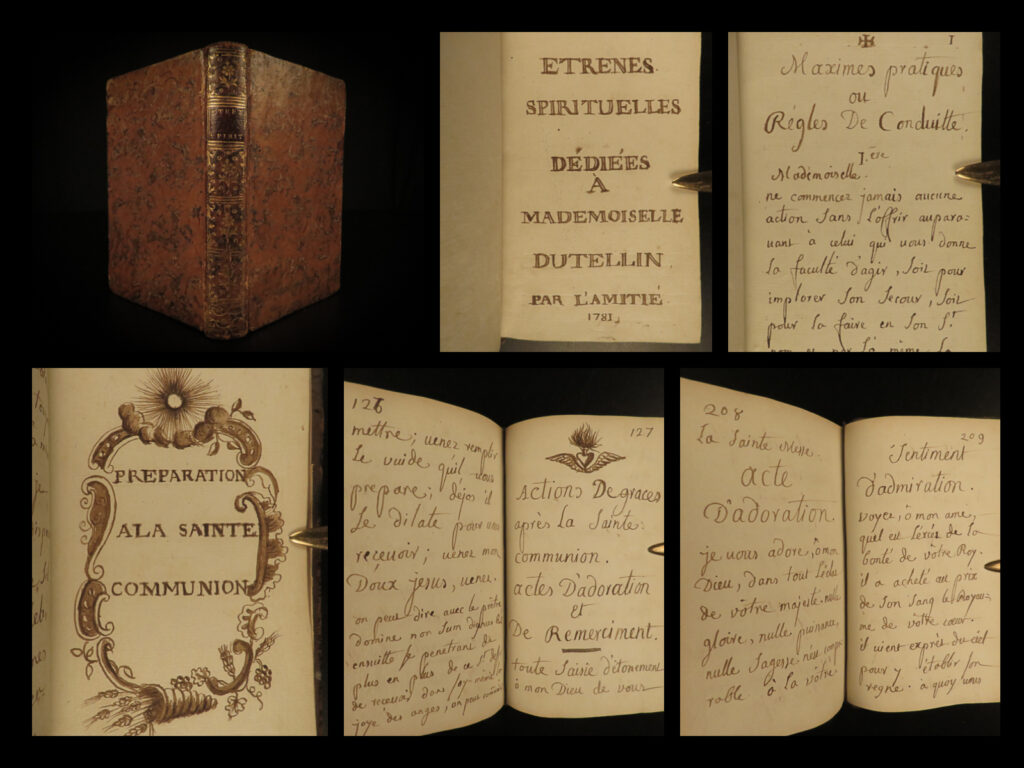 ETRE
SPIRIT
ETRENES
SPIRITUELLES
DÉDIÉES
À
MADEMOISELLE
DUTELLIN
PAR L'AMITIÉ
1781
1
Maximes pratiques
ou
Régles De Conduitte.
I.ère
Mademoiselle.
ne commencez jamais aucune
action sans l'offrir aupara=
uant à celui qui vous donne
la faculté d'agir, soit pour
implorer son secour, soit
pour la faire en son St
PREPARATION
A LA SAINTE
COMMUNION
126
mettre; uenez remplir
le vuide qu'il vous
prepare; déjos il
se dilate pour vous
receuoir; uenez mon
Doux jesus, uenez.
on peut dire avec le prêtre
domine non sum dignus
ensuitte se penetrant de
plus en plus de ce St
de receuoir dans soy
joye des anges, on peut
127
Actions De graces
après La Sainte
communion.
actes D'adoration
et
De Remerciment.
toute saisie d'étonement
ô mon Dieu de vous
208
La Sainte Messe.
acte
D'adoration.
je uous adore, ô mon
Dieu, dans tout l'éclat
de vôtre majesté. nulle
gloire, nulle puissance,
nulle sagesse n'est compa
rable à la vôtre
209
Sentiment
d'admiration.
voyez, ô mon ame,
quel est l'éxcés de la
bonté de vôtre Roy.
il a acheté au prix
de son sang le Royau=
me de votre cœur.
il uient exprés du ciel
pour y établir son
regne: à quoy